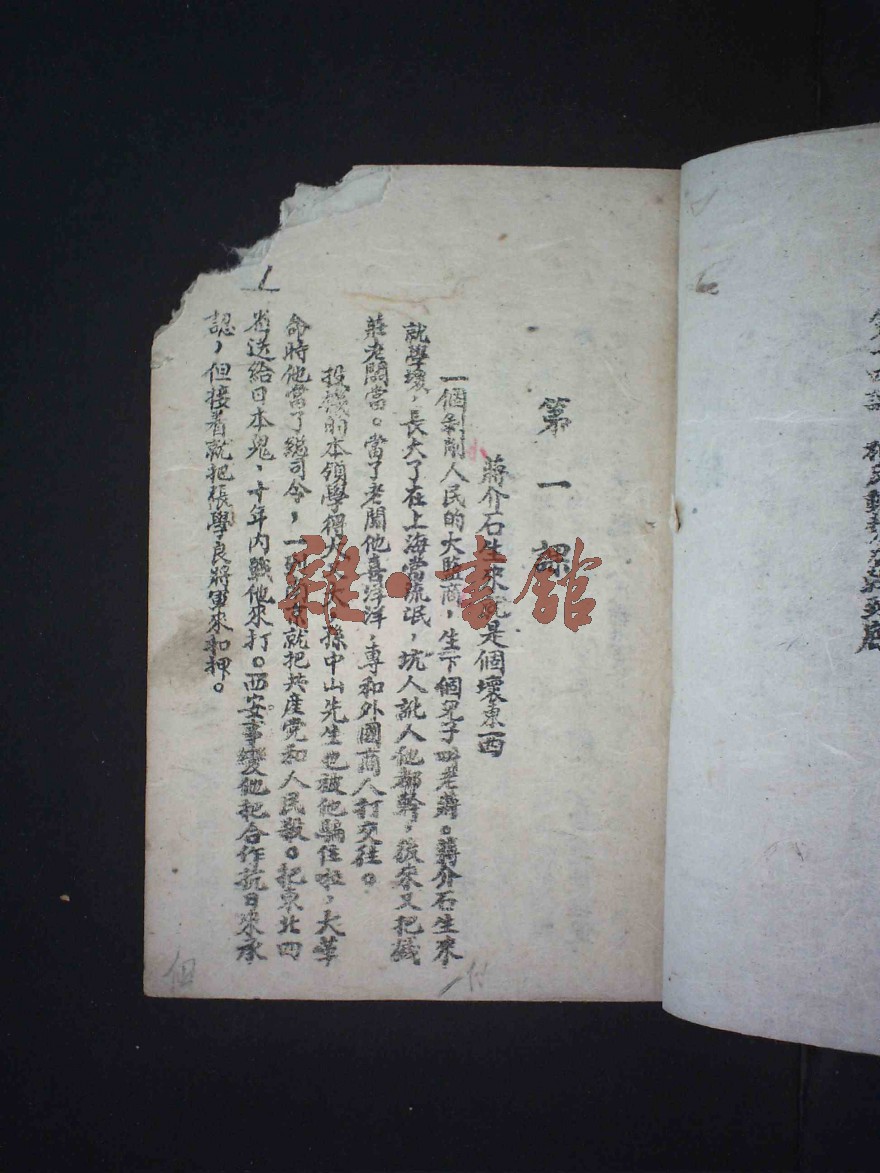 第一課
蔣介石生來就是個壞東西
一個剝削人民的大盐商，生下個兒子叫老蔣。蔣介石生來
就學壞，長大了在上海當流氓，坑人訛人他都幹，後來又把錢
莊老闆當。當了老闆他喜洋洋，專和外國商人打交往。
投機的本領學得大，孫中山先生也被他騙住啦，大革
命時他當了總司令，一到南京就把共產党和人民殺。把東北四
省送給日本鬼，十年內戰他來打。西安事變他把合作抗日來承
認，但接着就把張學良將軍來扣押。
1
雜·書館